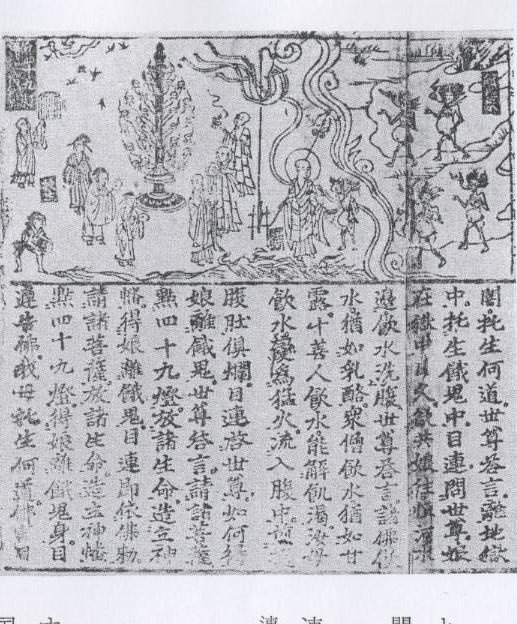 閣托生何道世尊荅言離地獄
中托生餓鬼中目連問世尊娘
在獄中日久欲共娘往恒河水
邊飲水洗腹世尊荅言諸佛飲
水猶如乳酪衆僧飲水猶如甘
露十善人飲水能解飢渴汝母
飲水變為猛火流入腹中
腹肚俱爛目連啓世尊如何得
娘離餓鬼世尊荅言請諸菩薩
㸃四十九燈放諸生命造立神
幡得娘離餓鬼目連即依佛勑
請諸菩薩放諸生命造立神幡
㸃四十九燈得娘離餓鬼身目
連告佛我母托生何道佛